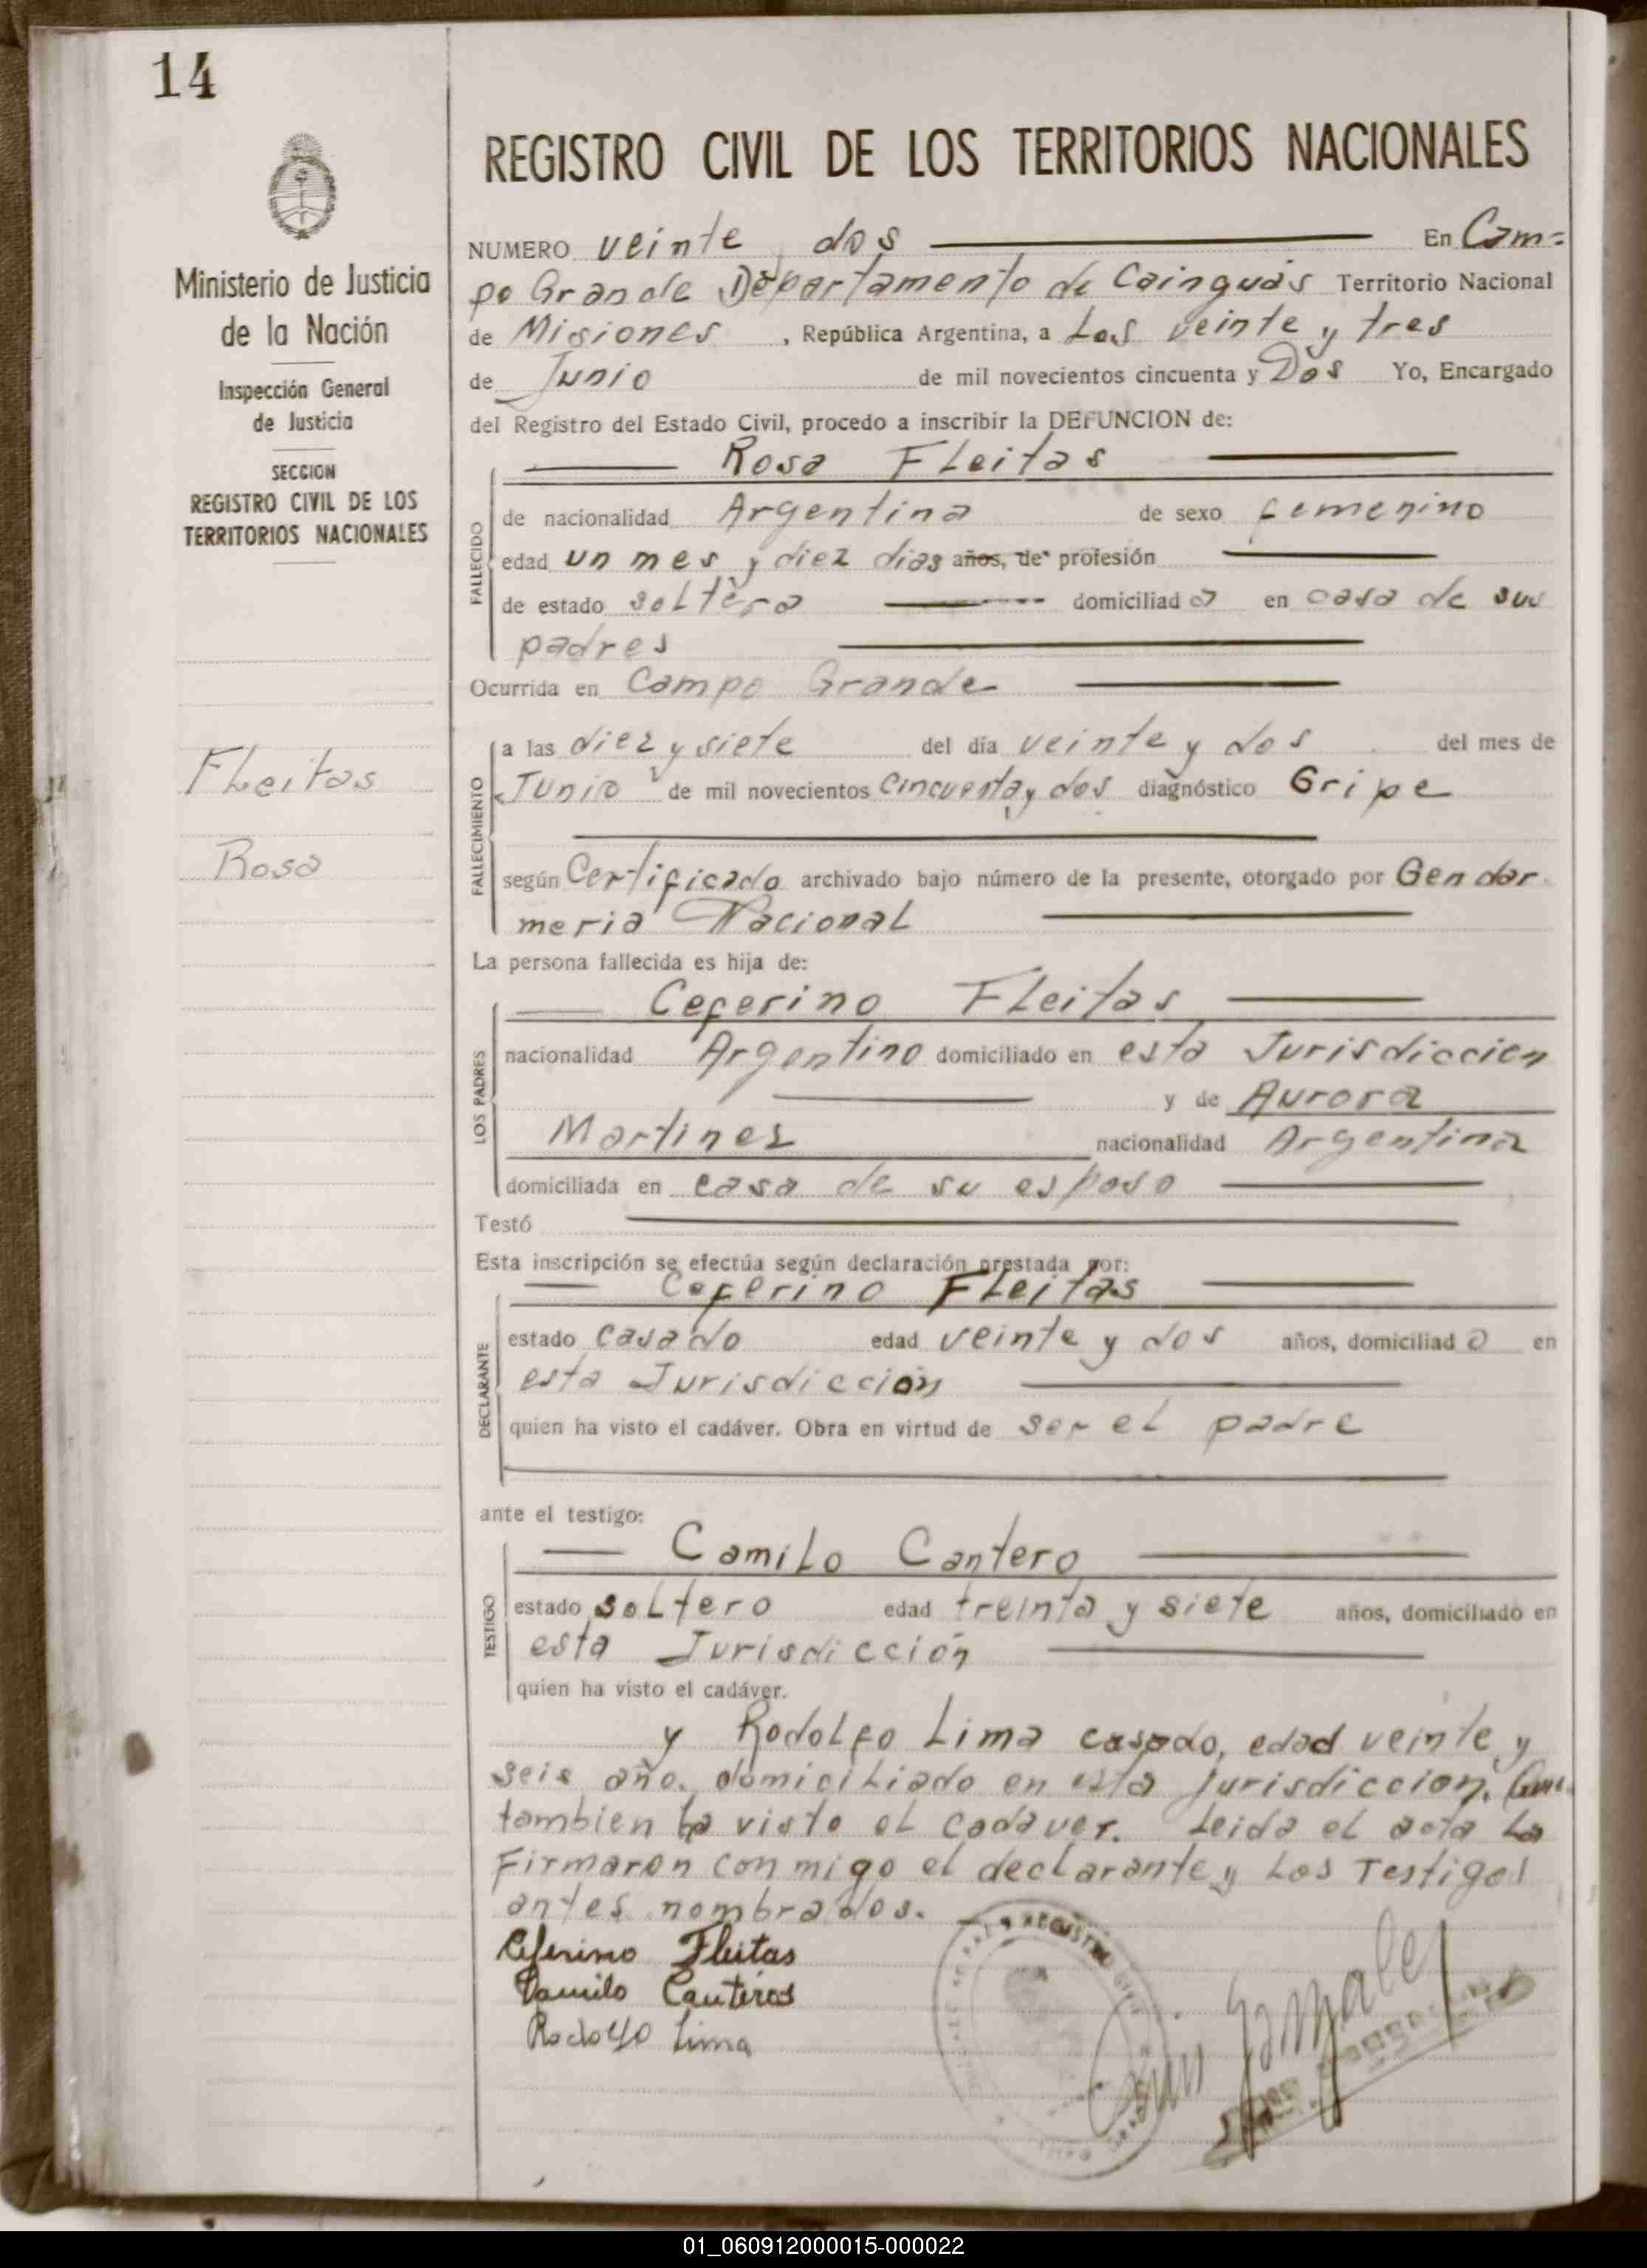 14
REGISTRO CIVIL DE LOS TERRITORIOS NACIONALES
Ministerio de Justicia
de la Nación
Inspección General
de Justicia
SECCION
REGISTRO CIVIL DE LOS
TERRITORIOS NACIONALES
Fleitas
Rosa
NUMERO veinte dos En Cam=
po Grande Departamento de Cainguás Territorio Nacional
de Misiones, República Argentina, a Los veinte y tres
de Junio de mil novecientos cincuenta y Dos Yo, Encargado
del Registro del Estado Civil, procedo a inscribir la DEFUNCION de:
Rosa Fleitas
FALLECIDO
de nacionalidad Argentina de sexo femenino
edad un mes y diez dias años, de profesión
de estado soltera domiciliada en casa de sus
padres
Ocurrida en Campo Grande
FALLECIMIENTO
a las diez y siete del día veinte y dos del mes de
Junio de mil novecientos cincuenta y dos diagnóstico Gripe
según Certificado archivado bajo número de la presente, otorgado por Gendar
meria Nacional
La persona fallecida es hija de:
Ceferino Fleitas
LOS PADRES
nacionalidad Argentino domiciliado en esta Jurisdiccion
y de Aurora
Martinez nacionalidad Argentina
domiciliada en casa de su esposo
Testó
Esta inscripción se efectúa según declaración prestada por:
Ceferino Fleitas
DECLARANTE
estado casado edad veinte y dos años, domiciliado en
esta Jurisdicción
quien ha visto el cadáver. Obra en virtud de ser el padre
ante el testigo:
Camilo Cantero
TESTIGO
estado soltero edad treinta y siete años, domiciliado en
esta Jurisdicción
quien ha visto el cadáver.
y Rodolfo Lima casado, edad veinte y
seis año. domiciliado en esta jurisdiccion. Que
tambien ha visto el cadaver. Leida el acta la
Firmaron con migo el declarante y Los Testigos
antes nombrados.
Ceferino Fleitas
Camilo Canteros
Rodolfo Lima
REGISTRO
Gonzalez
01_060912000015-000022